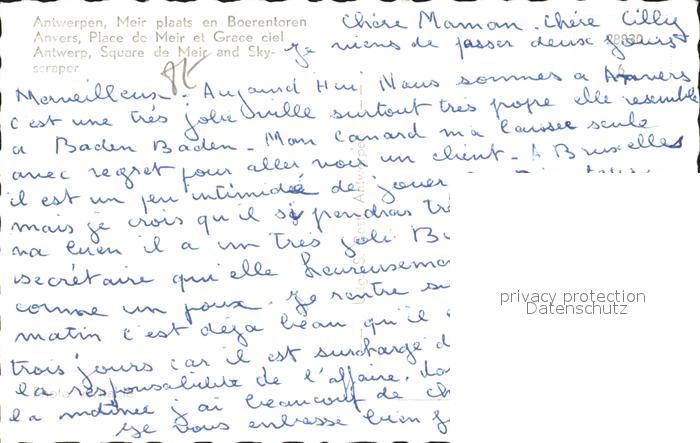 Antwerpen, Meir plaats en Boerentoren
Anvers, Place de Meir et Grace ciel
Antwerp, Square de Meir and Sky-
scraper
Chère Maman. chère Cilly
Je viens de passer deux jours
Merveilleux. Aujourd Hui Nous sommes a Anvers
c'est une très jolie ville surtout très propre elle resemble
a Baden Baden - Mon Canard m'a laissée seule
avec regret pour aller voir un client - A Bruxelles
il est un peu intimidé de jouer
mais je crois qu'il s'y prendras
va bien il a un très joli
secrétaire qu'elle heureusem
comme un poux. Je rentre
matin c'est déja beau qu'il
trois jours car il est surchargé d
la responsabilité de l'affaire.
la matinée j'ai beaucoup de ch
Je vous embrasse bien f
privacy protection
Datenschutz